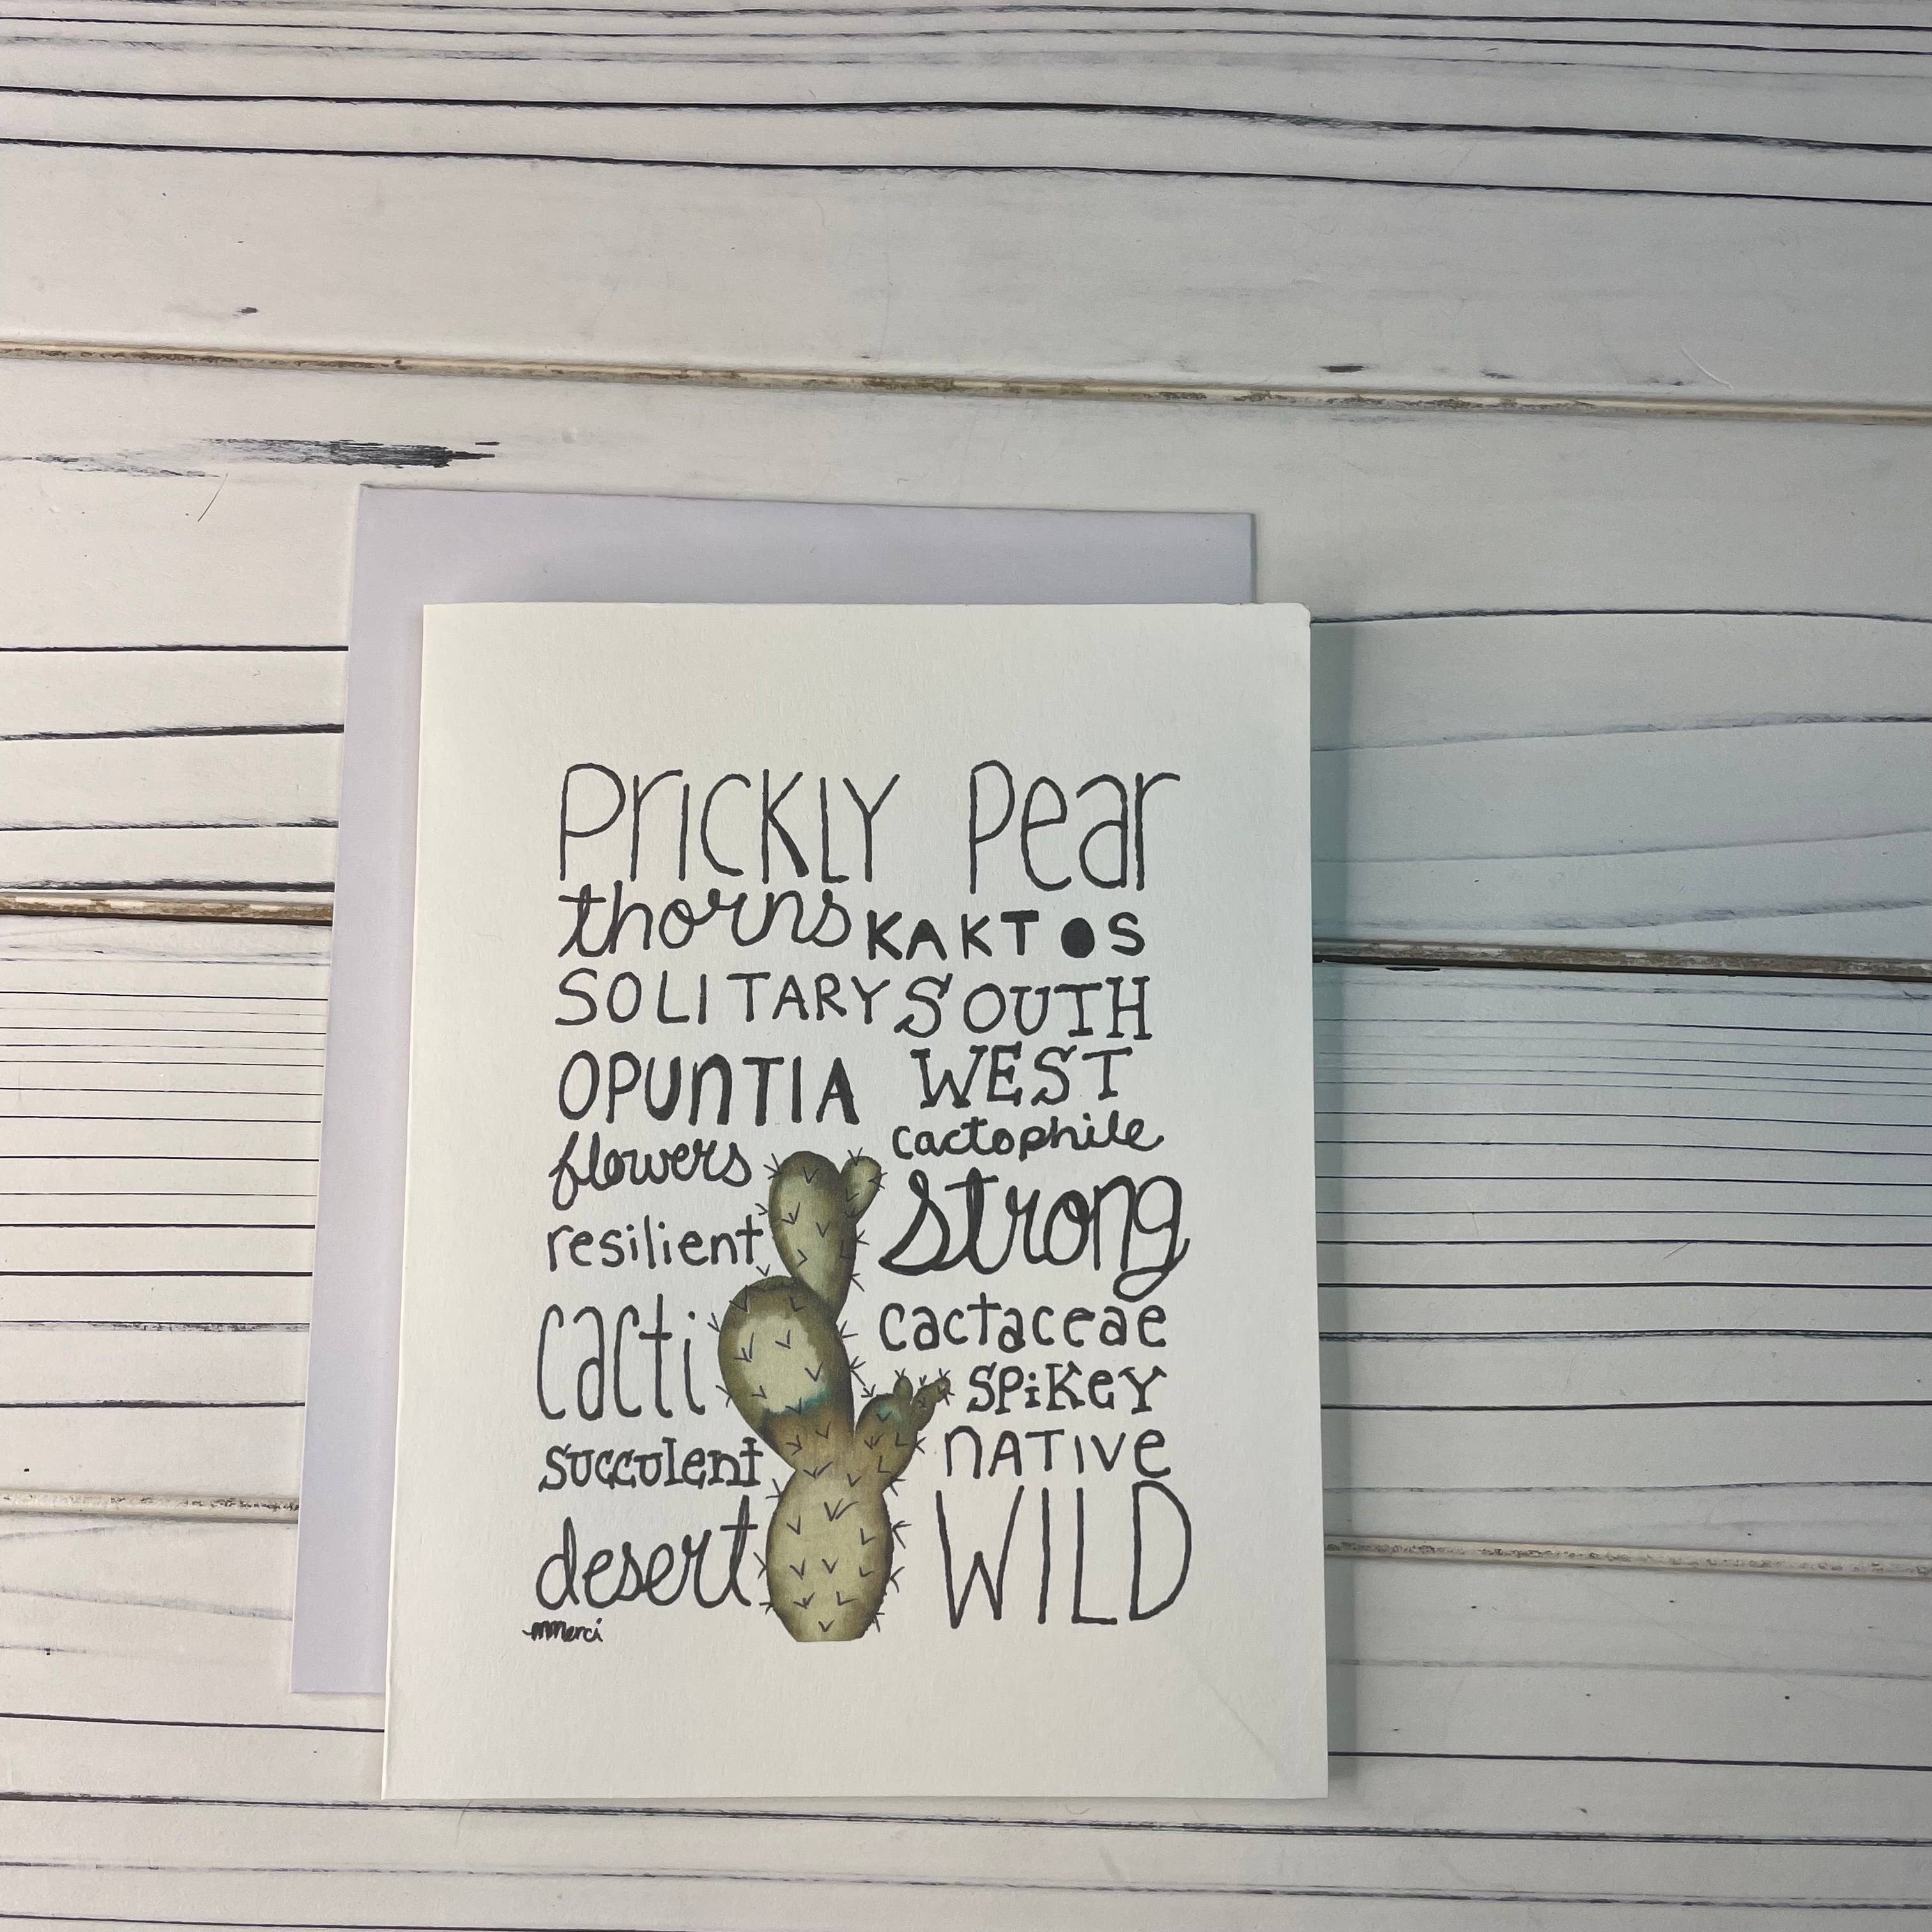 PrICKLY Pear
thorns KAKTOS
SOLITARY SOUTH
OPUnTIA WEST
cactophile
flowers
strong
resilient
cacti cactaceae
SPiKeY
succulent nATIVe
desert WILD
mmerci